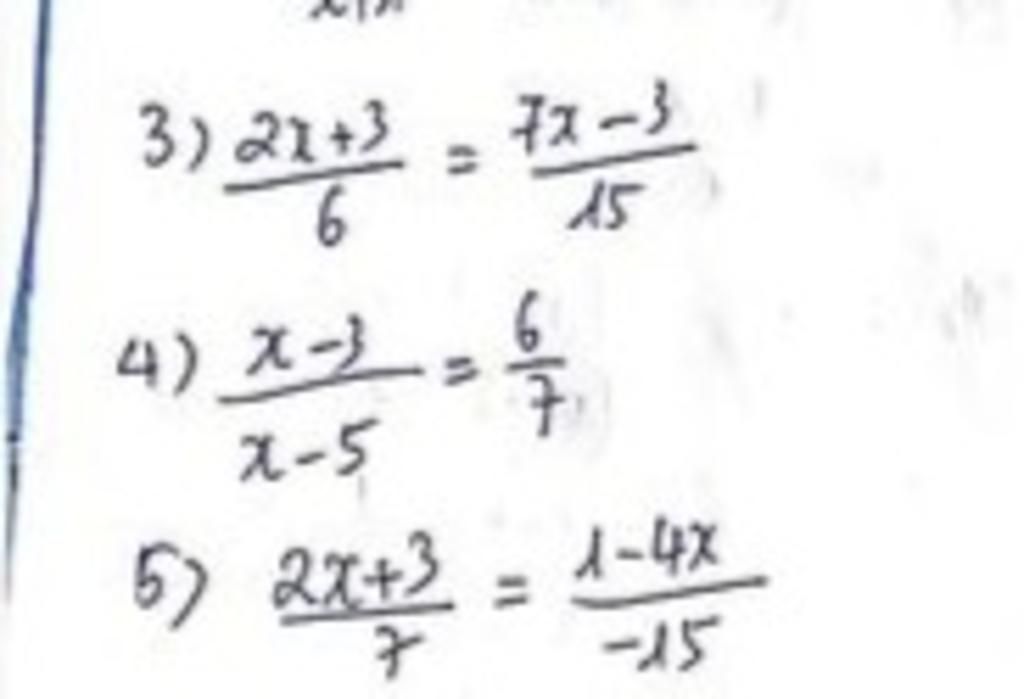 3) (2x+3)/6 = (7x-3)/15
4) (x-3)/(x-5) = 6/7
5) (2x+3)/7 = (1-4x)/-15